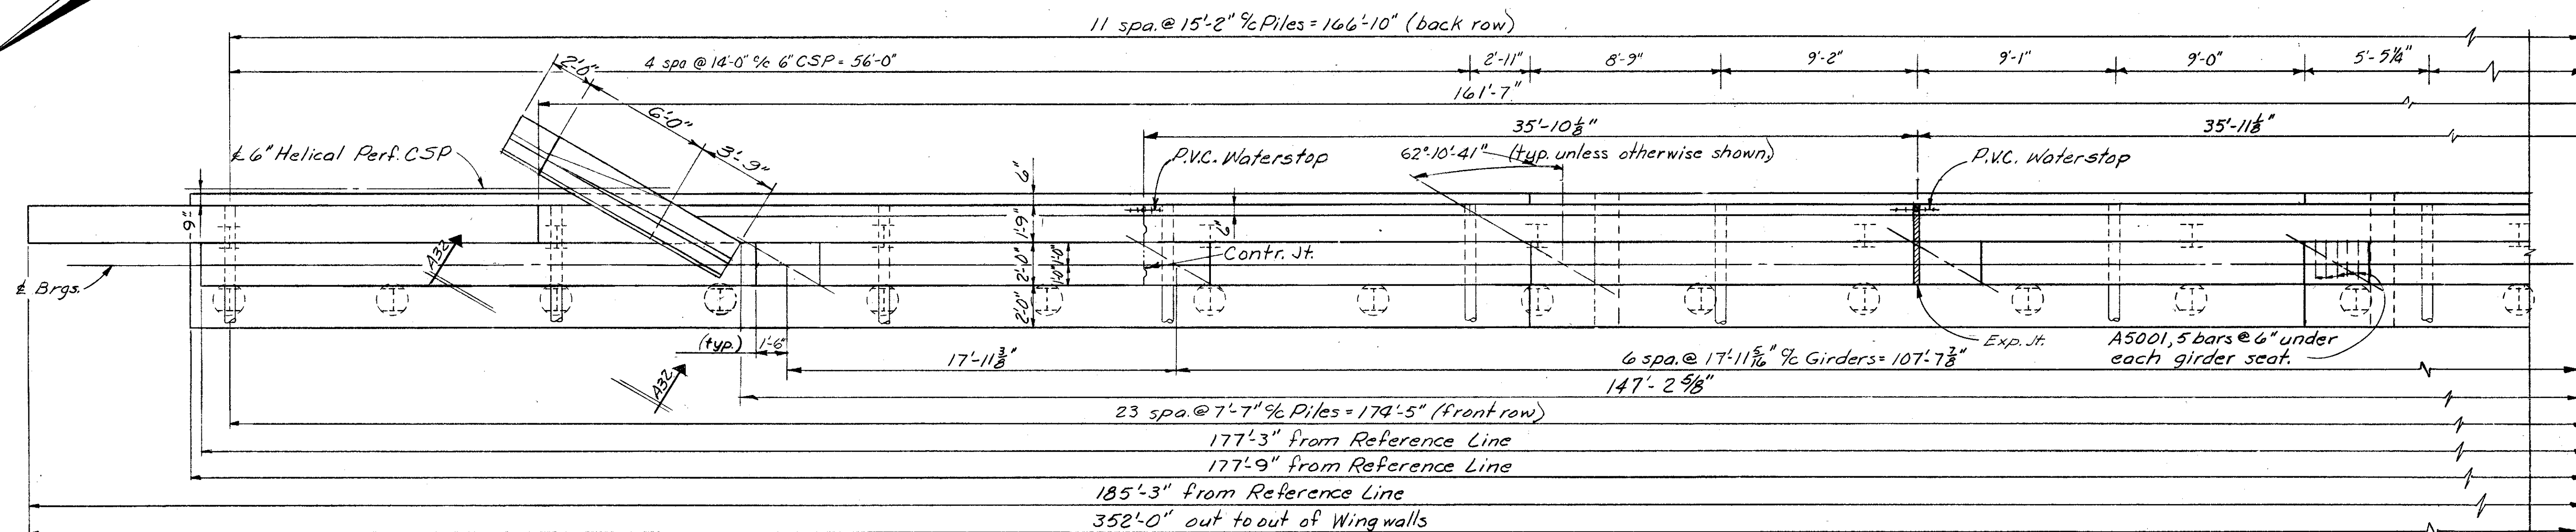 11 spa. @ 15'-2" c/c Piles = 166'-10" (back row)
4 spa @ 14'-0" c/c 6" CSP = 56'-0"
2'-11"
8'-9"
9'-2"
9'-1"
9'-0"
5'-5 1/4"
2'-0"
161'-7"
6'-0"
3'-9"
35'-10 1/8"
35'-11 1/8"
℄ 6" Helical Perf. CSP
P.V.C. Waterstop
62°-10'-41" (typ. unless otherwise shown)
P.V.C. Waterstop
6"
-9"
1'-9"
6"
A32
2'-0"
1'-0"
1'-0"
Contr. Jt.
℄ Brgs.
2'-0"
(typ.)
1'-6"
17'-11 3/8"
A32
Exp. Jt.
A5001, 5 bars @ 6" under
each girder seat.
6 spa. @ 17'-11 5/16" c/c Girders = 107'-7 7/8"
147'-2 5/8"
23 spa. @ 7'-7" c/c Piles = 174'-5" (front row)
177'-3" from Reference Line
177'-9" from Reference Line
185'-3" from Reference Line
352'-0" out to out of Wingwalls